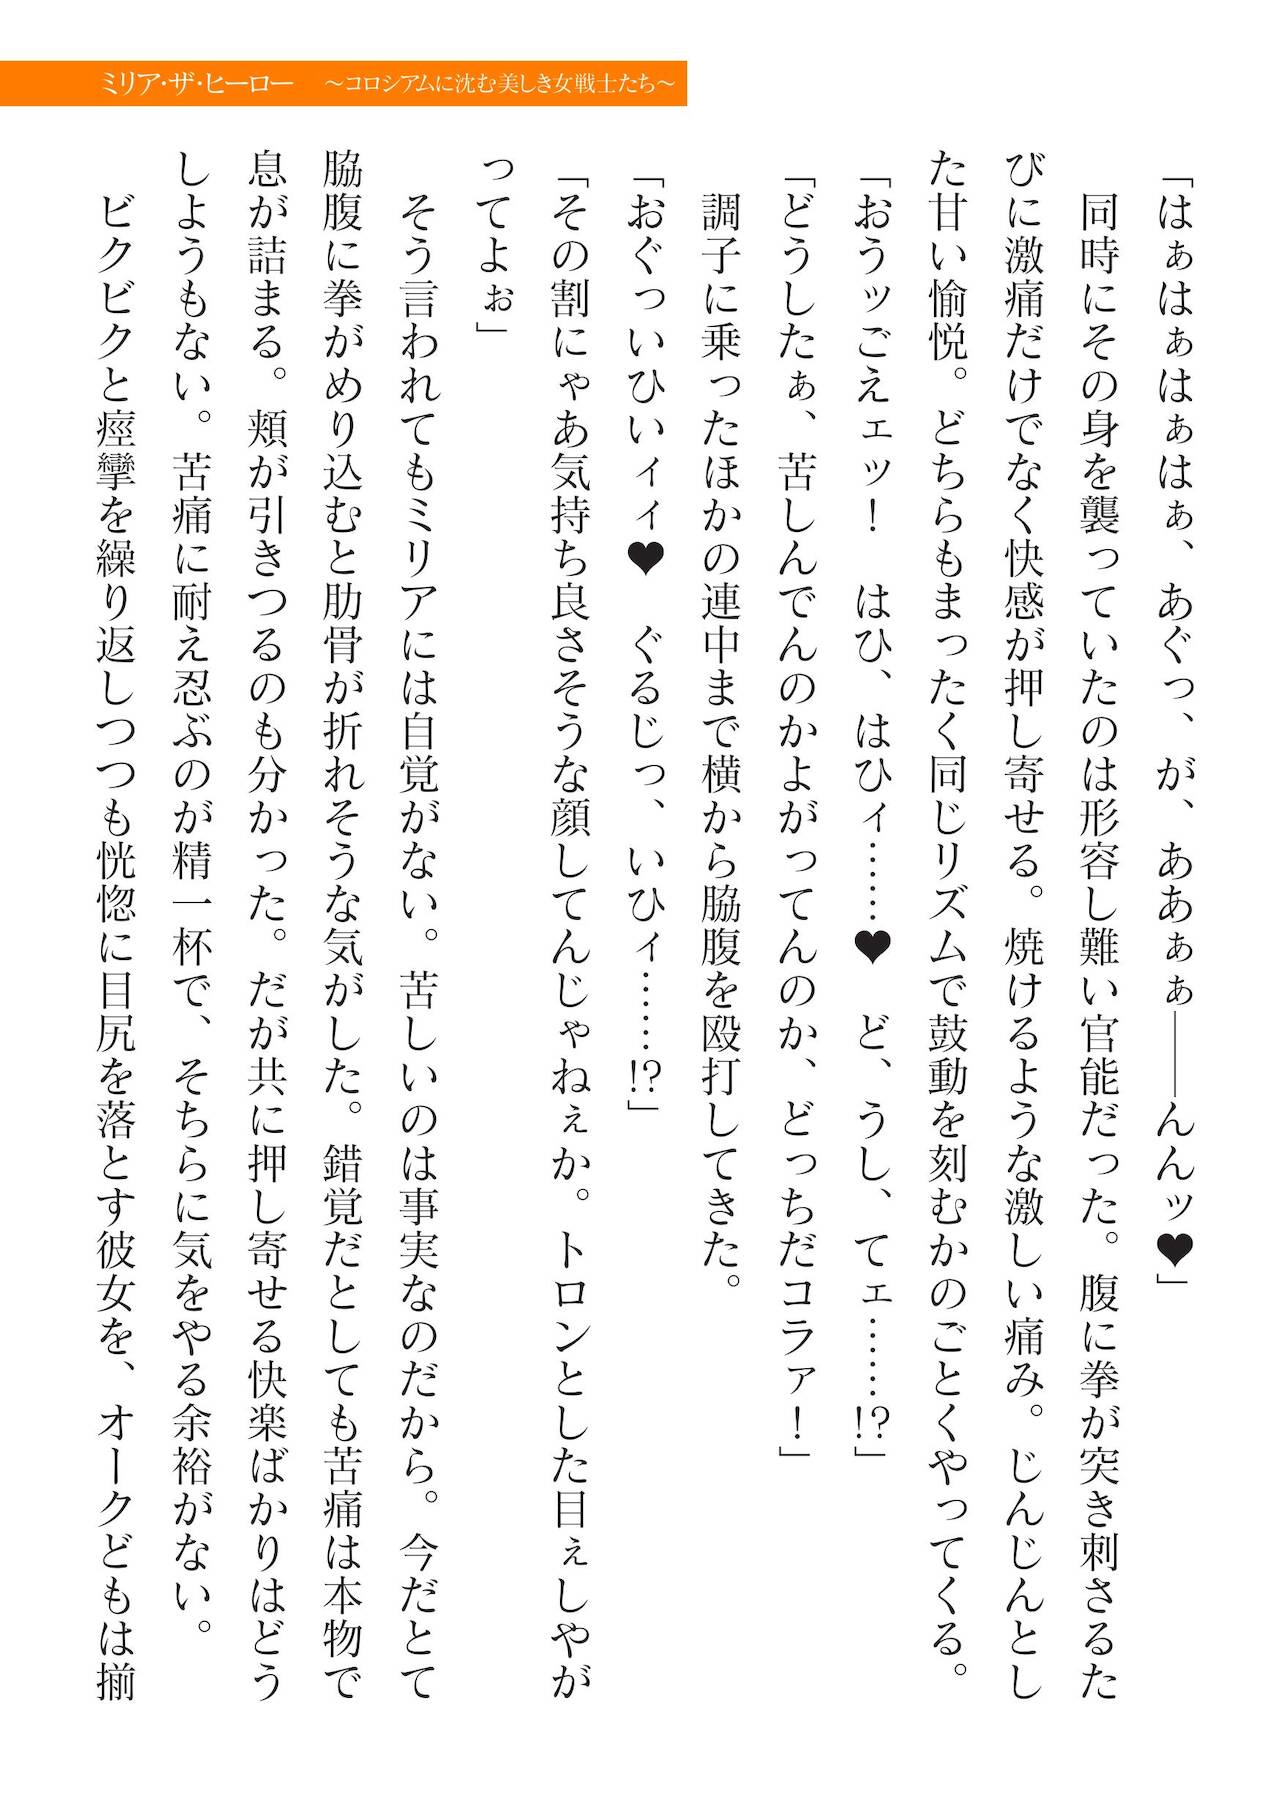 ミリア・ザ・ヒーロー　～コロシアムに沈む美しき女戦士たち～
「はぁはぁはぁはぁ、あぐっ、が、ああぁぁ――んんッ♥」
　同時にその身を襲っていたのは形容し難い官能だった。腹に拳が突き刺さるた
びに激痛だけでなく快感が押し寄せる。焼けるような激しい痛み。じんじんとし
た甘い愉悦。どちらもまったく同じリズムで鼓動を刻むかのごとくやってくる。
「おうッごえェッ！　はひ、はひィ……♥　ど、うし、てェ……!?」
「どうしたぁ、苦しんでんのかよがってんのか、どっちだコラァ！」
　調子に乗ったほかの連中まで横から脇腹を殴打してきた。
「おぐっいひいィィ♥　ぐるじっ、いひィ……!?」
「その割にゃあ気持ち良さそうな顔してんじゃねぇか。トロンとした目ぇしやが
ってよぉ」
　そう言われてもミリアには自覚がない。苦しいのは事実なのだから。今だとて
脇腹に拳がめり込むと肋骨が折れそうな気がした。錯覚だとしても苦痛は本物で
息が詰まる。頬が引きつるのも分かった。だが共に押し寄せる快楽ばかりはどう
しようもない。苦痛に耐え忍ぶのが精一杯で、そちらに気をやる余裕がない。
　ビクビクと痙攣を繰り返しつつも恍惚に目尻を落とす彼女を、オークどもは揃